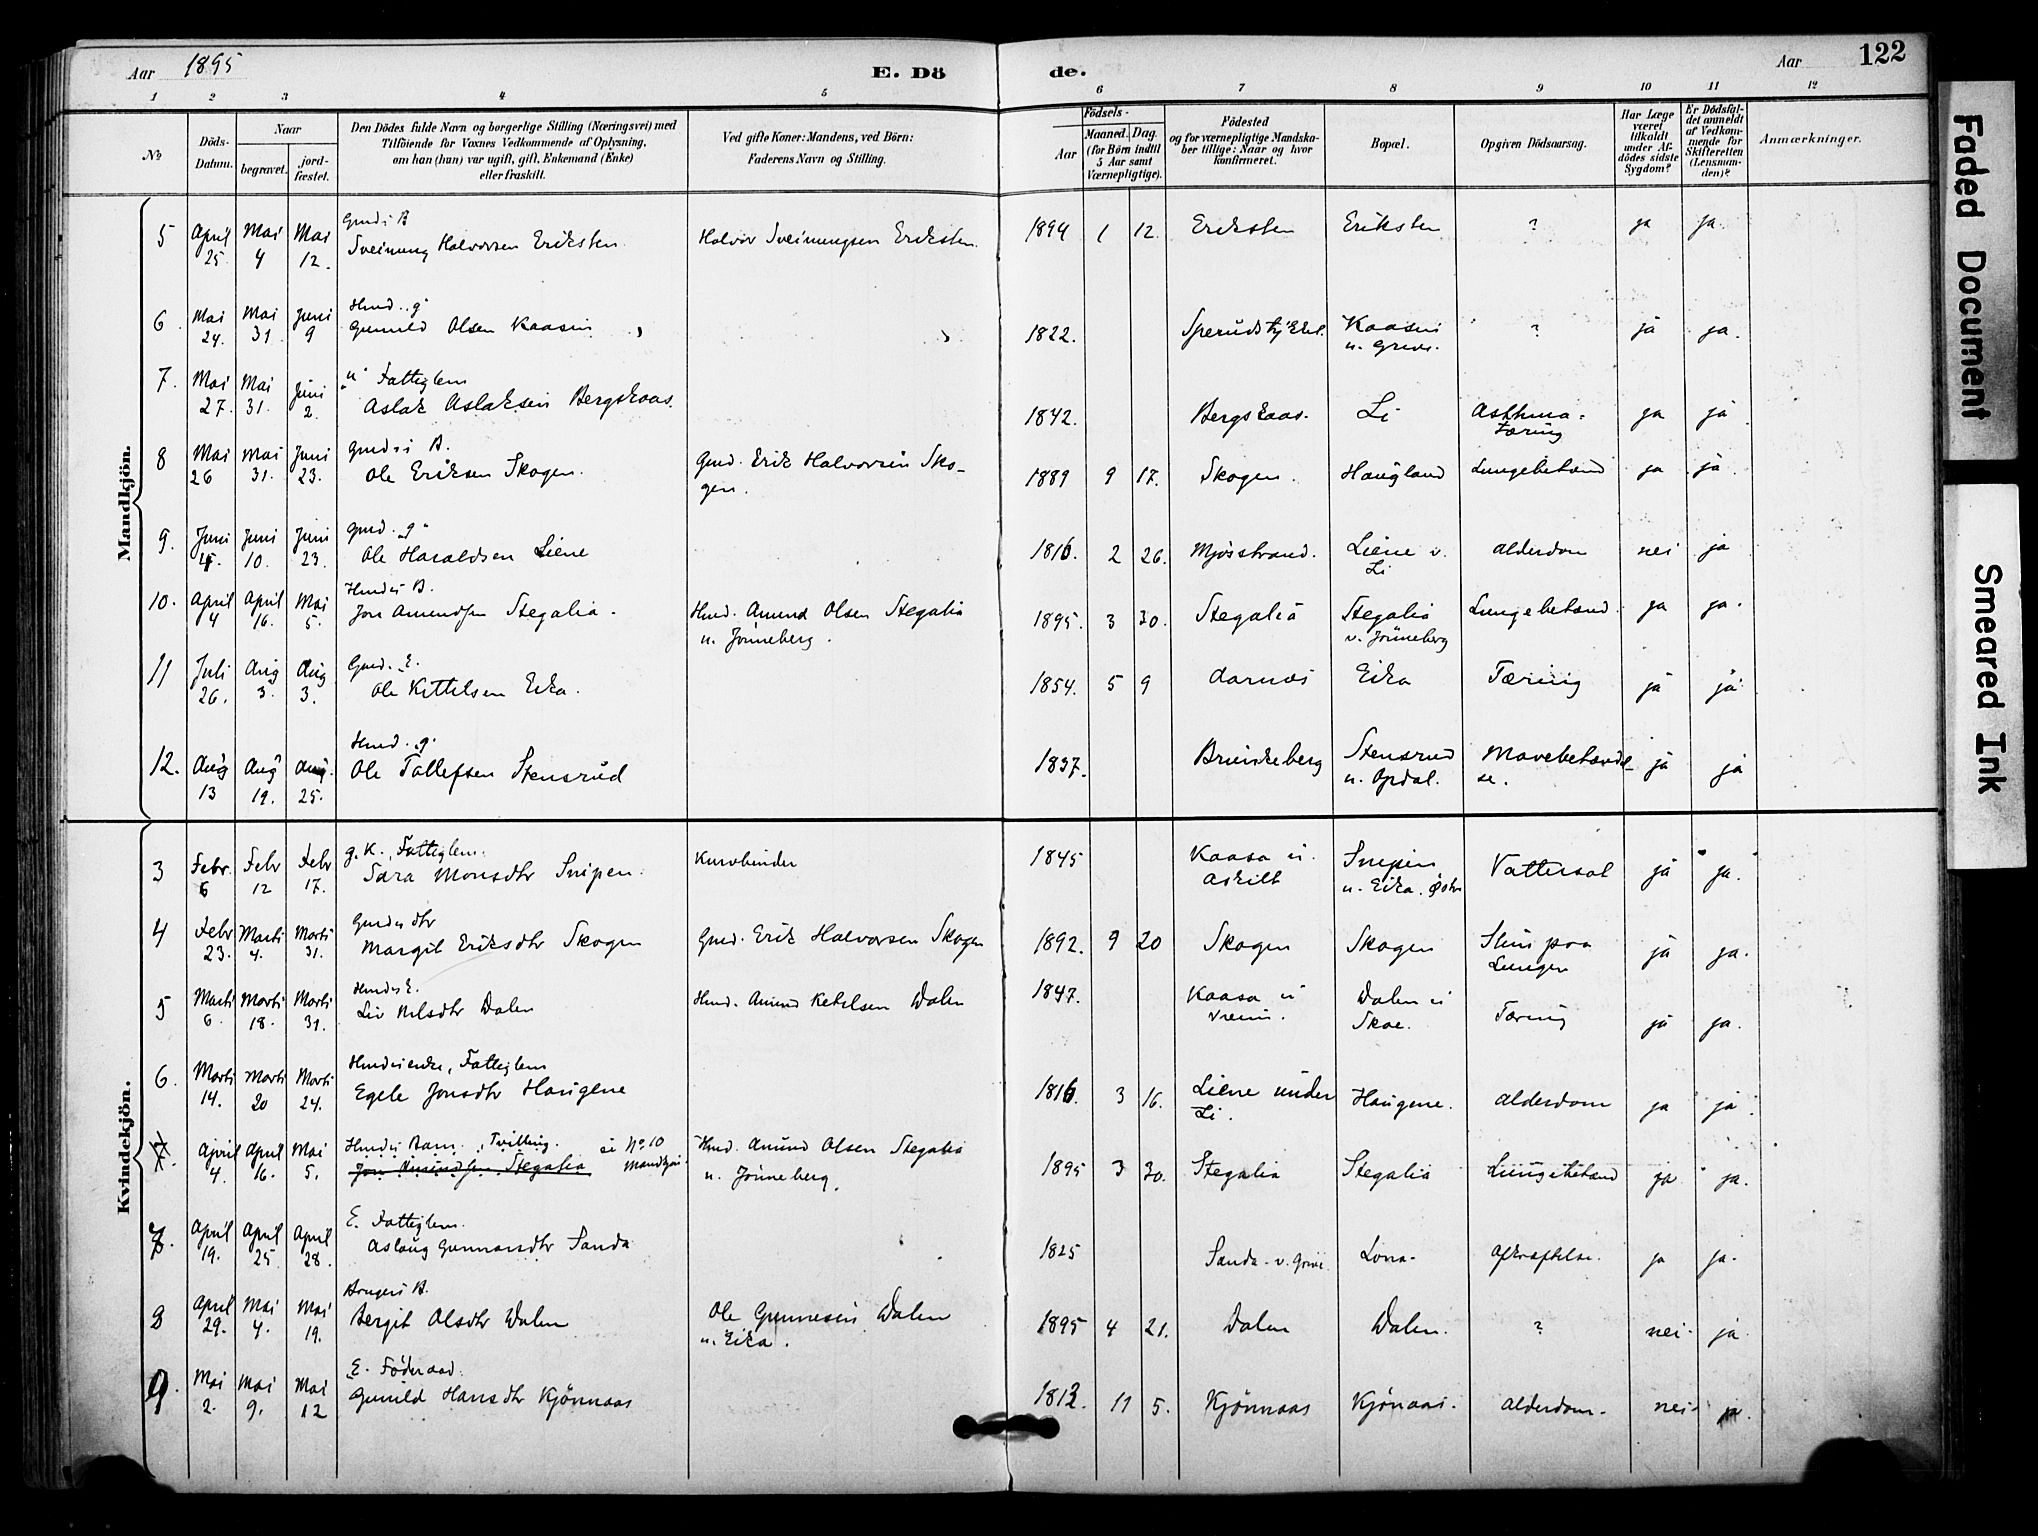 Aar 1895
E. Dö
de.
Aar
122
1 2 3 4 5 6 7 8 9 10 11 12
No
Döds-Datum.
Naar
begravet.
jord-fæstet.
Den Dödes fulde Navn og borgerlige Stilling (Næringsvei) med
Tilföiende for Voxnes Vedkommende af Oplysning,
om han (hun) var ugift, gift, Enkemand (Enke)
eller fraskilt.
Ved gifte Koner: Mandens, ved Börn:
Faderens Navn og Stilling.
Födsels-
Aar
Maaned. Dag.
(for Börn indtil
5 Aar samt
Værnepligtige).
Födested
og for værnepligtige Mandska-
ber tillige: Naar og hvor
konfirmeret.
Bopæl.
Opgiven Dödsaarsag.
Har Læge
været
tilkaldt
under Af-
dödes sidste
Sygdom?
Er Dödsfal-
det anmeldt
af Vedkom-
mende for
Skifteretten
(Lensman-
den)?
Anmærkninger.
Mandkjön.
Gmds B
5 April 25. Mai 4 Mai 12. Sveinung Halvorsen Eriksten Halvor Sveinungsen Eriksten. 1894 1 12. Eriksten Eriksten ? ja ja.
Hmd. g
6 Mai 24. Mai 31. Juni 9 Gunuld Olsen Kaasin 1822. Kaasin ? ja ja.
"u" Fattiglem
7. Mai 27. Mai 31. Juni 2. Aslak Aslaksen Bergskaas. 1842. Bergskaas. Li Asthma - Tæring ja ja
Gmds B.
8 Mai 26 Mai 31. Juni 23. Ole Eriksen Skogen. Gmd. Erik Halvorsen Sko-
gen. 1889 9 17. Skogen. Haugland Lungebetænd ja ja
Gmd. g
9. Juni 10. Juni 23. Ole Haraldsen Liene 1816. 2 26. Mjösstrand. Liene v. Li Alderdom nei ja
Hmds B.
10. April 4 April 16. Mai 5. Jon Amundsen Stegalia. Hmd. Amund Olsen Stegalia
u. Jönneberg. 1895. 3 30. Stegalia Stegalia v. Jönneberg Lungebetænd. ja ja.
Gmd. E.
11 Juli 26. Aug 3. Aug 3. Ole Kittilsen Eika. 1854. 5 9 Aarnæs Eika Tæring ja ja
Hmd. g.
12. Aug 13 Aug 19. Aug. 25. Ole Tollefsen Stensrud 1837. Brunkeberg Stensrud u. Opdal. Mavebetændel-
se. ja ja
Kvindekjön.
g. K. Fattiglem.
3 Febr. 6 Febr 12 Febr 17. Sara Monsdtr Snipen. Kurvbinder 1845 Kaasa i Snipen u. Eika. Østr Vattersot ja ja.
Gmds dtr
4 Febr 23. Marts 4. Marts 31. Margit Eriksdtr Skogen Gmd. Erik Halvorsen Skogen 1892. 9 20 Skogen Skogen Slim paa Lungen ja ja.
Hmds E.
5 Marts 6. Marts 18. Marts 31. Liv Nilsdtr Dalen Hmd. Amund Ketilsen Dalen 1847. Kaasa i Dalen i Skoe. Tæring ja ja.
Hmds enke, Fattiglem
6. Marts 14. Marts 20 Marts 24. Egele Jonsdtr Haugene 1816. 3 16. Liene under Li. Haugene. Alderdom ja ja
Hmds Barn. Tvilling. No 10
7. April 4. April 16. Mai 5. Jon Amundsen Stegalia Mandkjön. Hmd. Amund Olsen Stegalia
u. Jönneberg. 1895 3 30. Stegalia Stegalia Lungebetænd ja ja.
E. Fattiglem.
7. April 19. April 25 April 28. Aslaug Gunnarsdtr Sanda 1825 Sanda - v. Lona - Afkræftelse. ja ja.
Brugers B.
8 April 29. Mai 4. Mai 19. Bergit Olsdtr Dalen Ole Gunnesen Dalen
u. Eika. 1895 4 21. Dalen Dalen. ? nei. ja
E. Föderaad.
9. Mai 2. Mai 9. Mai 12 Gunild Hansdtr Kjönnaas 1812. 11 5. Kjönnaas Kjönaas. Alderdom. nei ja.
Faded Document
Smeared Ink